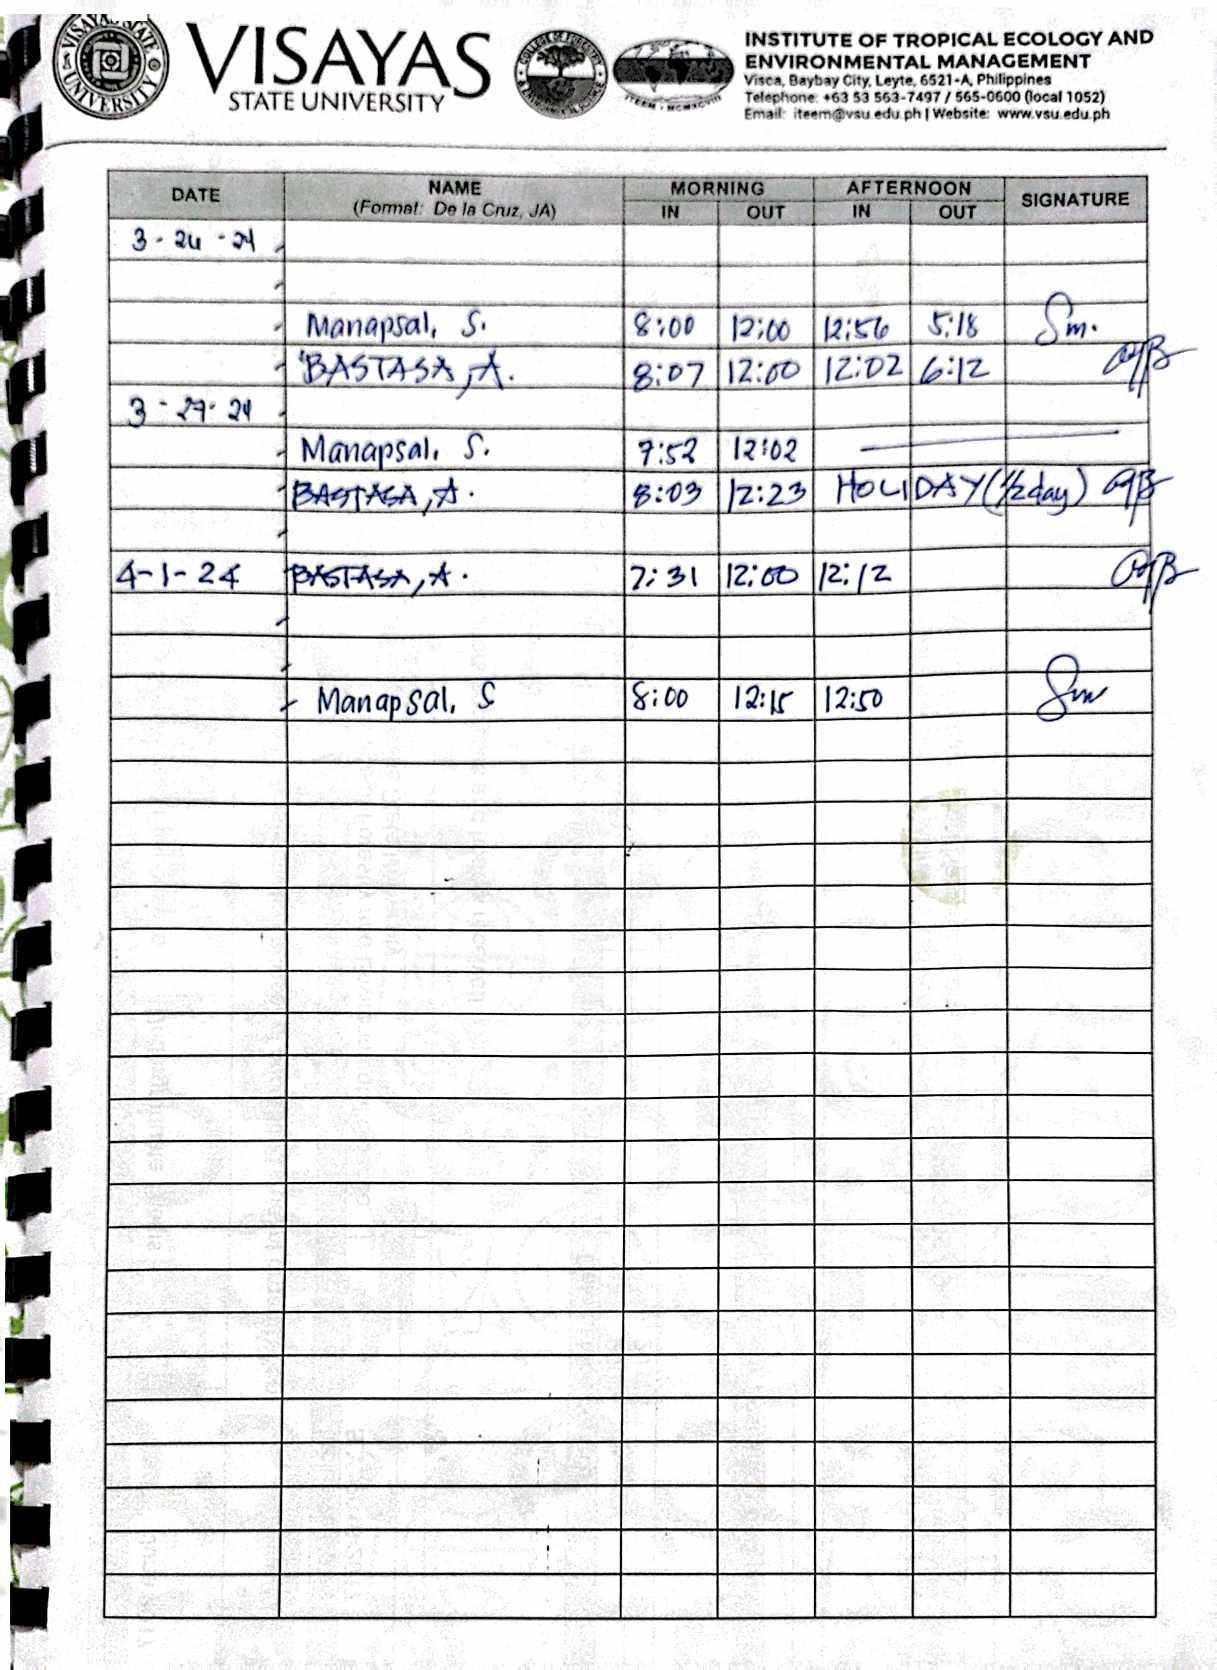 VISAYAS
STATE UNIVERSITY
INSTITUTE OF TROPICAL ECOLOGY AND
ENVIRONMENTAL MANAGEMENT
Visca, Baybay City, Leyte, 6521-A, Philippines
Telephone: +63 53 563-7497 / 565-0600 (local 1052)
Email: iteem@vsu.edu.ph | Website: www.vsu.edu.ph
DATE NAME MORNING AFTERNOON SIGNATURE
(Format: De la Cruz, JA) IN OUT IN OUT
3-26-24
Manapsal, S. 8:00 12:00 12:56 5:18 Sm.
BASTASA, A. 8:07 12:00 12:02 6:12
3-27-24
Manapsal, S. 7:52 12:02
BASTASA, A. 8:03 12:23 HOLIDAY (1/2 day)
4-1-24 BASTASA, A. 7:31 12:00 12:12
Manapsal, S 8:00 12:15 12:50 Sm